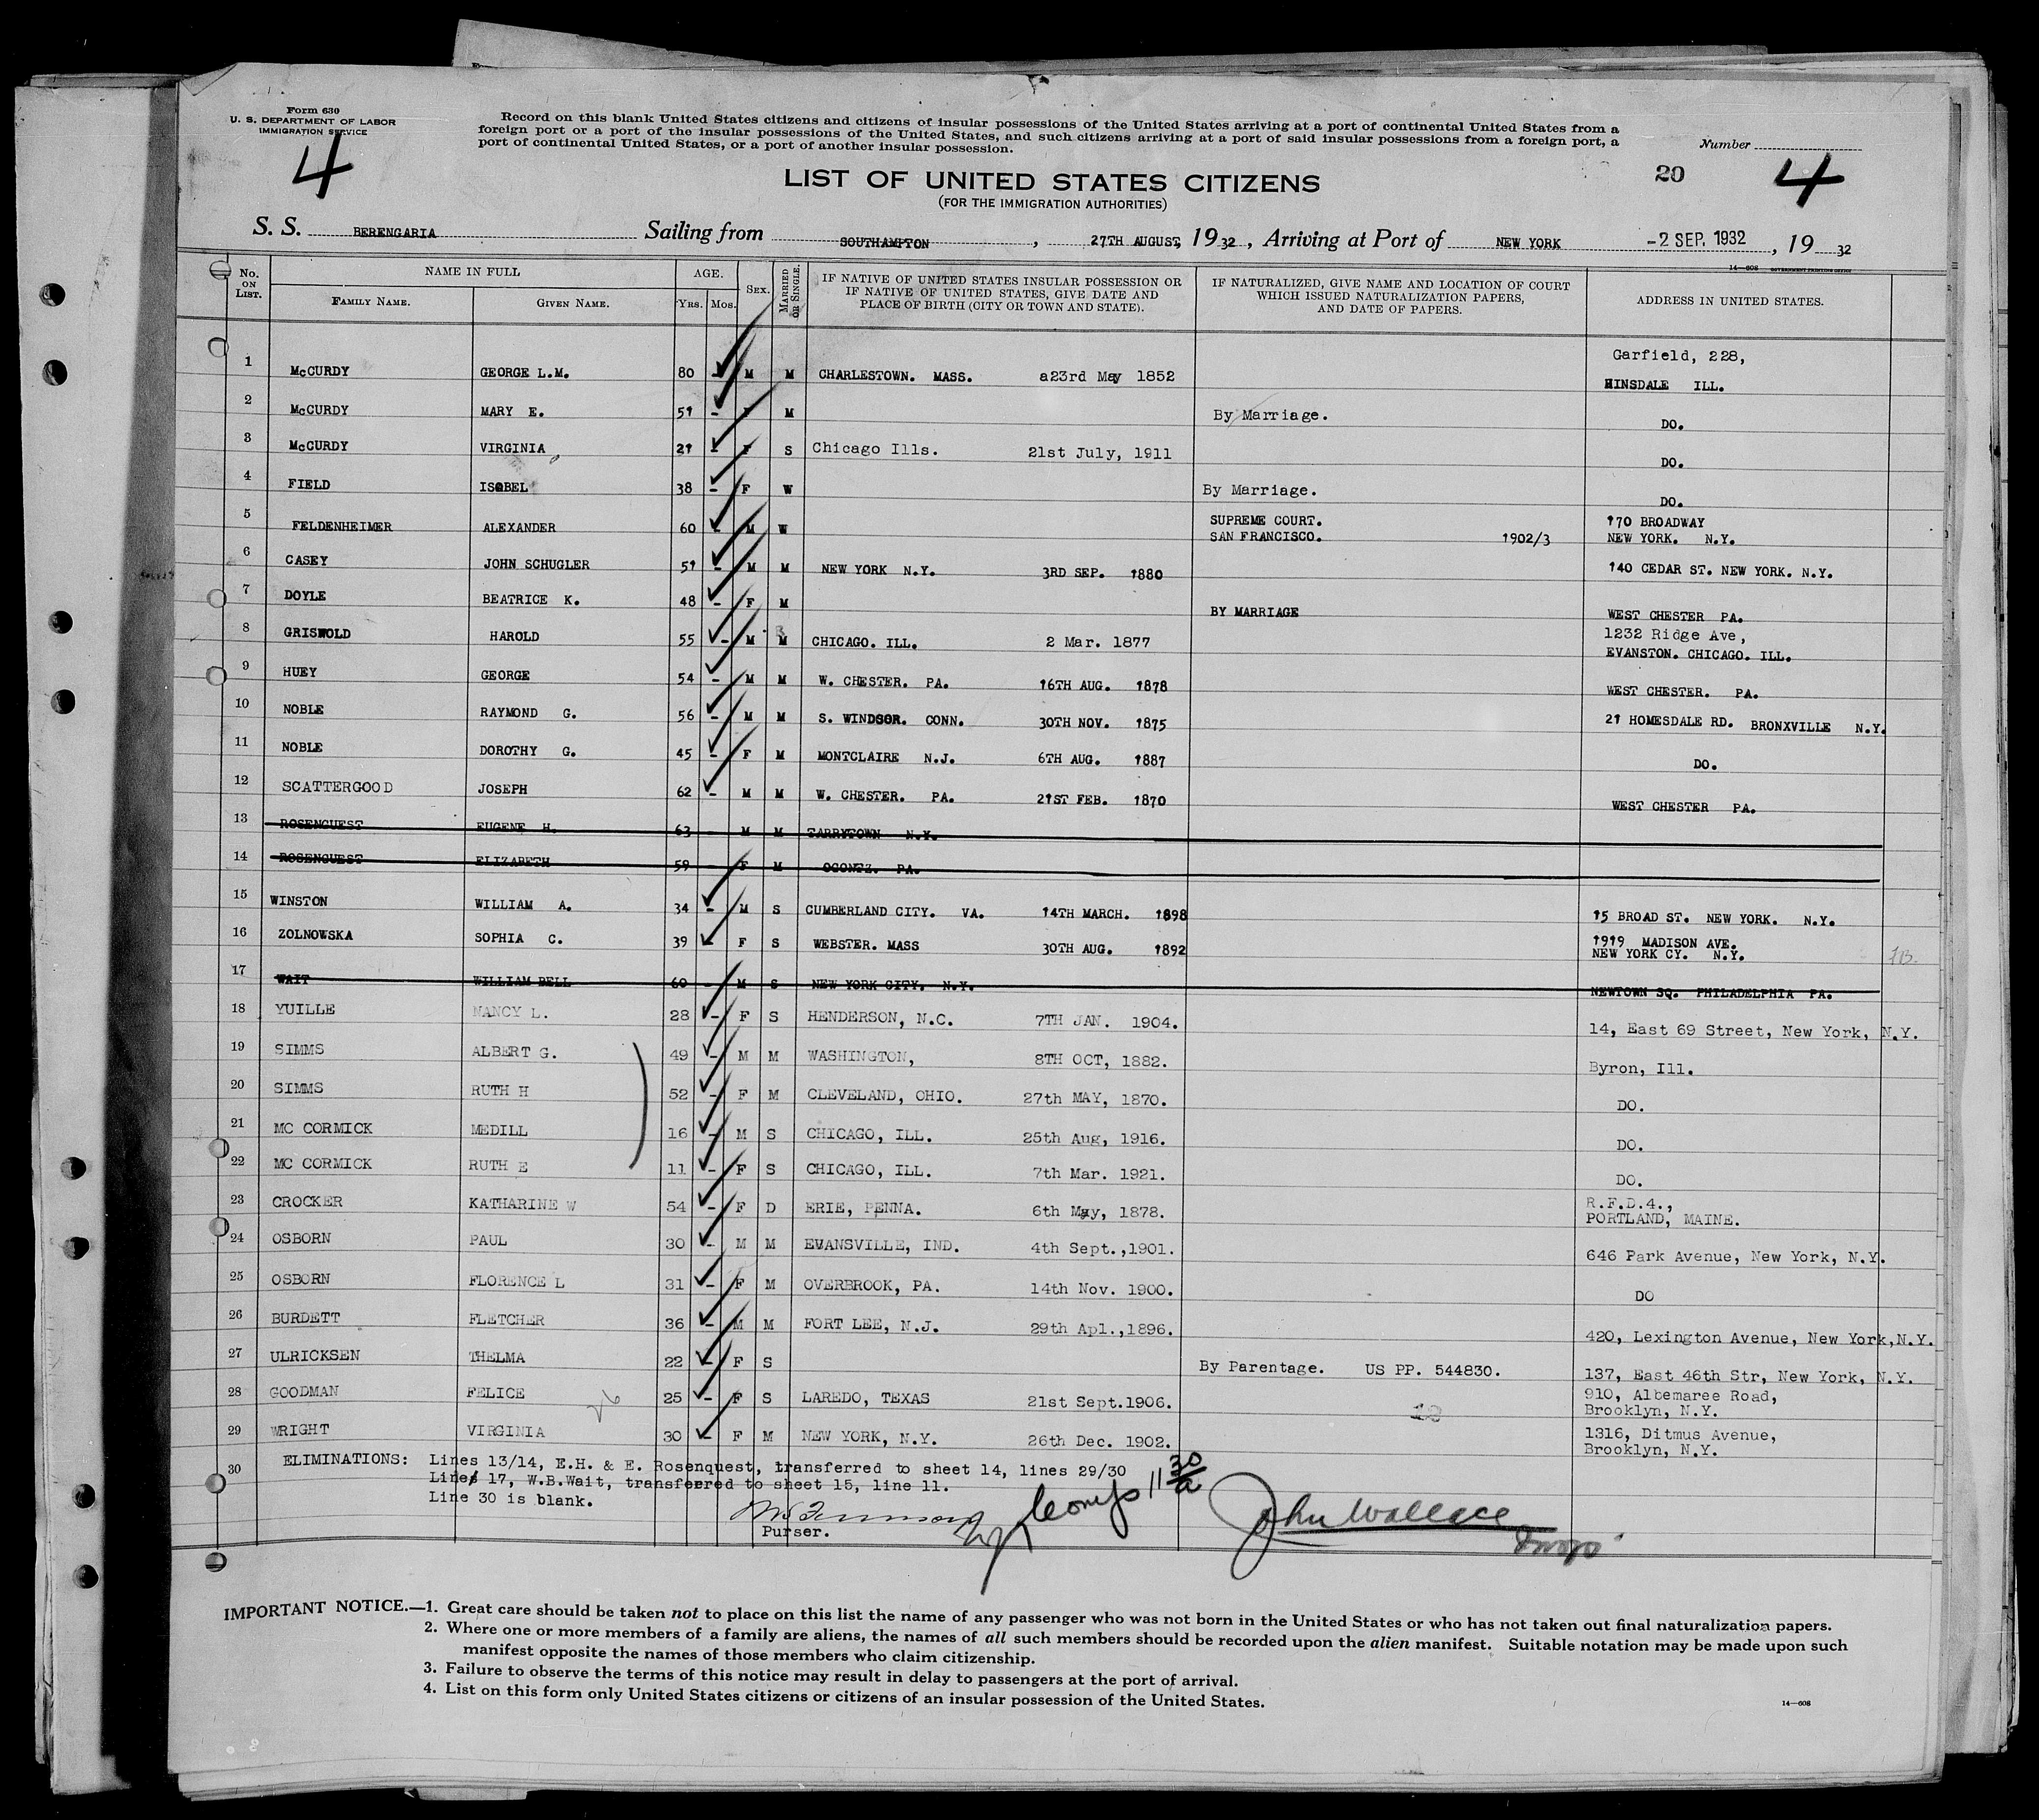 Form 630
U. S. DEPARTMENT OF LABOR
IMMIGRATION SERVICE
4
Record on this blank United States citizens and citizens of insular possessions of the United States arriving at a port of continental United States from a
foreign port or a port of the insular possessions of the United States, and such citizens arriving at a port of said insular possessions from a foreign port, a
port of continental United States, or a port of another insular possession.
Number
20 4
LIST OF UNITED STATES CITIZENS
(FOR THE IMMIGRATION AUTHORITIES)
S. S. BERENGARIA Sailing from SOUTHAMPTON, 27TH AUGUST, 1932, Arriving at Port of NEW YORK -2 SEP. 1932, 19 32
14—608 GOVERNMENT PRINTING OFFICE
No. ON LIST. NAME IN FULL AGE. SEX. MARRIED OR SINGLE. IF NATIVE OF UNITED STATES INSULAR POSSESSION OR IF NATIVE OF UNITED STATES, GIVE DATE AND PLACE OF BIRTH (CITY OR TOWN AND STATE). IF NATURALIZED, GIVE NAME AND LOCATION OF COURT WHICH ISSUED NATURALIZATION PAPERS, AND DATE OF PAPERS. ADDRESS IN UNITED STATES.
FAMILY NAME. GIVEN NAME. YRS. MOS.
1 McCURDY GEORGE L.M. 80 - M M CHARLESTOWN. MASS. a23rd May 1852 Garfield, 228, HINSDALE ILL.
2 McCURDY MARY E. 51 - F M By Marriage. DO.
3 McCURDY VIRGINIA 21 - F S Chicago Ills. 21st July, 1911 DO.
4 FIELD ISOBEL 38 - F W By Marriage. DO.
5 FELDENHEIMER ALEXANDER 60 - M W SUPREME COURT. SAN FRANCISCO. 1902/3 170 BROADWAY NEW YORK. N.Y.
6 CASEY JOHN SCHUGLER 51 - M M NEW YORK N.Y. 3RD SEP. 1880 140 CEDAR ST. NEW YORK. N.Y.
7 DOYLE BEATRICE K. 48 - F M BY MARRIAGE WEST CHESTER PA.
8 GRISWOLD HAROLD 55 - M M CHICAGO. ILL. 2 Mar. 1877 1232 Ridge Ave, EVANSTON. CHICAGO. ILL.
9 HUEY GEORGE 54 - M M W. CHESTER. PA. 16TH AUG. 1878 WEST CHESTER. PA.
10 NOBLE RAYMOND G. 56 - M M S. WINDSOR. CONN. 30TH NOV. 1875 21 HOMESDALE RD. BRONXVILLE N.Y.
11 NOBLE DOROTHY G. 45 - F M MONTCLAIRE N.J. 6TH AUG. 1887 DO.
12 SCATTERGOOD JOSEPH 62 - M M W. CHESTER. PA. 21ST FEB. 1870 WEST CHESTER PA.
13 ROSENQUEST EUGENE H. 63 - M M TARRYTOWN N.Y.
14 ROSENQUEST ELIZABETH 59 - F M OGONTZ. PA.
15 WINSTON WILLIAM A. 34 - M S CUMBERLAND CITY. VA. 14TH MARCH. 1898 15 BROAD ST. NEW YORK. N.Y.
16 ZOLNOWSKA SOPHIA C. 39 - F S WEBSTER. MASS 30TH AUG. 1892 1919 MADISON AVE. NEW YORK CY. N.Y.
17 WAIT WILLIAM BELL 60 - M S NEW YORK CITY. N.Y. NEWTOWN SQ. PHILADELPHIA PA.
18 YUILLE NANCY L. 28 - F S HENDERSON, N.C. 7TH JAN. 1904. 14, East 69 Street, New York, N.Y.
19 SIMMS ALBERT G. 49 - M M WASHINGTON, 8TH OCT, 1882. Byron, Ill.
20 SIMMS RUTH H 52 - F M CLEVELAND, OHIO. 27th MAY, 1870. DO.
21 MC CORMICK MEDILL 16 - M S CHICAGO, ILL. 25th Aug, 1916. DO.
22 MC CORMICK RUTH E 11 - F S CHICAGO, ILL. 7th Mar. 1921. DO.
23 CROCKER KATHARINE W 54 - F D ERIE, PENNA. 6th May, 1878. R.F.D.4., PORTLAND, MAINE.
24 OSBORN PAUL 30 - M M EVANSVILLE, IND. 4th Sept.,1901. 646 Park Avenue, New York, N.Y.
25 OSBORN FLORENCE L 31 - F M OVERBROOK, PA. 14th Nov. 1900. DO
26 BURDETT FLETCHER 36 - M M FORT LEE, N.J. 29th Apl.,1896. 420, Lexington Avenue, New York,N.Y.
27 ULRICKSEN THELMA 22 - F S By Parentage. US PP. 544830. 137, East 46th Str, New York, N.Y.
28 GOODMAN FELICE 25 - F S LAREDO, TEXAS 21st Sept.1906. 910, Albemaree Road, Brooklyn, N.Y.
29 WRIGHT VIRGINIA 30 - F M NEW YORK, N.Y. 26th Dec. 1902. 1316, Ditmus Avenue, Brooklyn, N.Y.
30 ELIMINATIONS: Lines 13/14, E.H. & E. Rosenquest, transferred to sheet 14, lines 29/30
Line 17, W.B.Wait, transferred to sheet 15, line 11.
Line 30 is blank.
Purser.
11 30/a
John Wallace
IMPORTANT NOTICE.—1. Great care should be taken not to place on this list the name of any passenger who was not born in the United States or who has not taken out final naturalization papers.
2. Where one or more members of a family are aliens, the names of all such members should be recorded upon the alien manifest. Suitable notation may be made upon such
manifest opposite the names of those members who claim citizenship.
3. Failure to observe the terms of this notice may result in delay to passengers at the port of arrival.
4. List on this form only United States citizens or citizens of an insular possession of the United States.
14—608